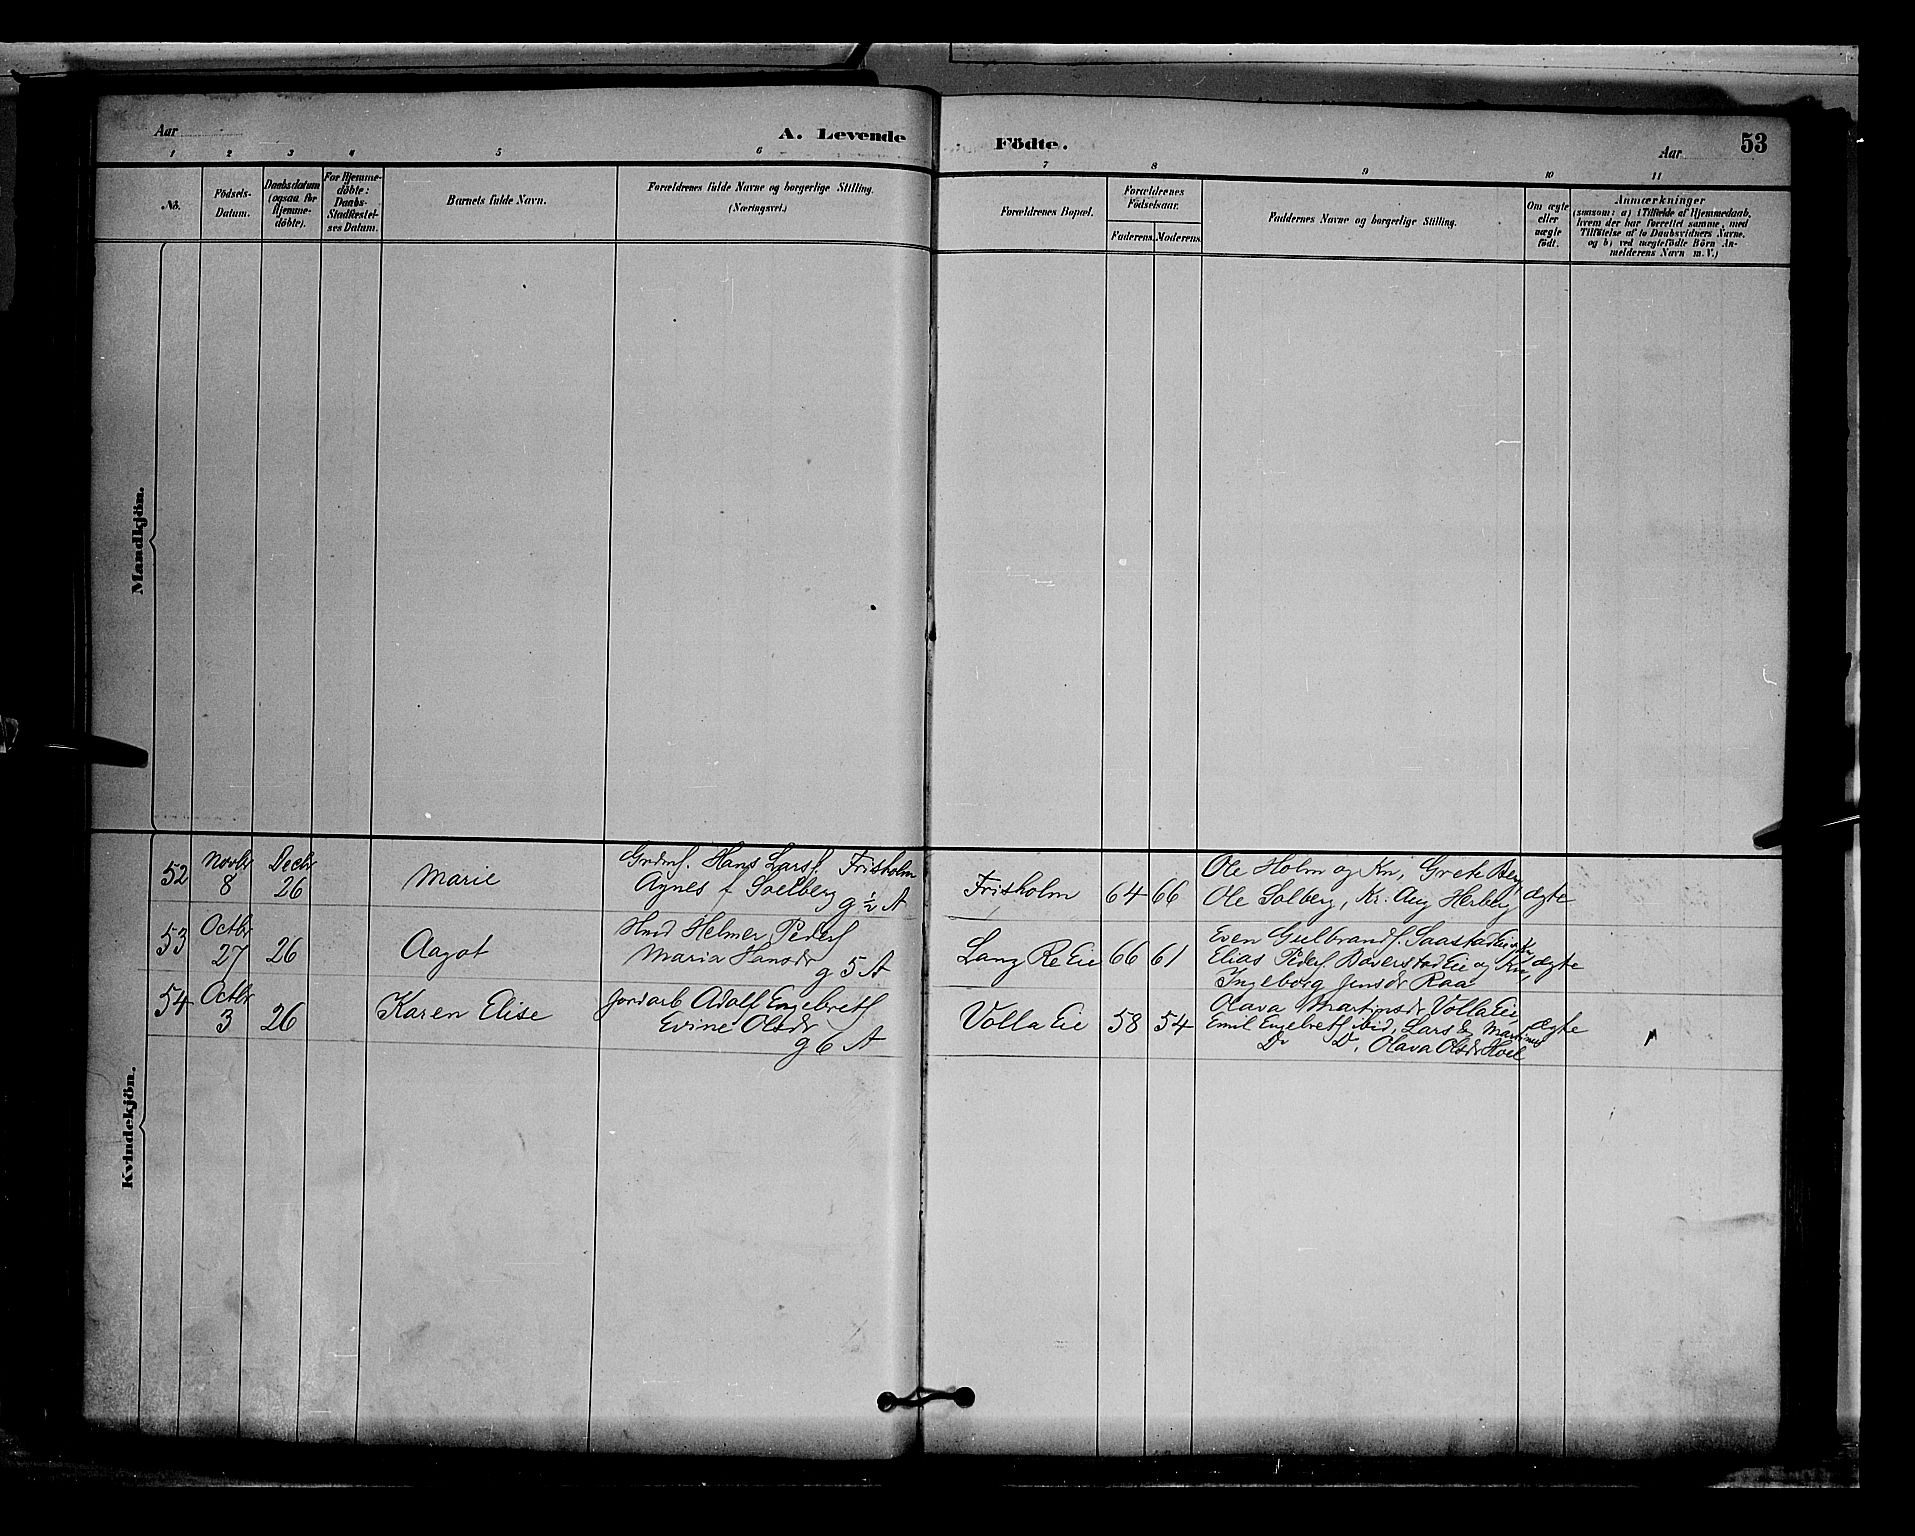 Aar
A. Levende
Födte.
Aar
53
1 2 3 4 5 6 7 8 9 10 11
No.
Födsels-
Datum.
Daabsdatum
(ogsaa for
Hjemme-
döbte).
For Hjemme-
döbte:
Daabs-
Stadfæstel-
ses Datum.
Barnets fulde Navn.
Forældrenes fulde Navne og borgerlige Stilling.
(Næringsvei.)
Forældrenes Bopæl.
Forældrenes
Födselsaar.
Faderens. Moderens.
Faddernes Navne og borgerlige Stilling.
Om ægte
eller
uægte
födt.
Anmærkninger
(saasom: a) i Tilfælde af Hjemmedaab,
hvem der har forrettet samme, med
Tilföielse af to Daabsvidners Navne,
og b) ved uægtefödte Börn An-
melderens Navn m. V.)
Mandkjön.
Kvindekjön.
52
Novbr
8
Decbr
26
Marie
Grdmf. Hans Larsf. Frisholm
Agnes f Soelberg
g ½ A
Frisholm
64
66
Ole Holm og Kn, Grete Berg
Ole Solberg, Kr. Aug Herberg
ægte
53
Octbr
27
26
Aagot
Hmd Helmer Pedersf
Maria Hansdr
g 5 A
Lang Re Eie
66
61
Even Gulbrandsf. Saastad Eie og Kn
Elias Pedersf. Baverstad Eie og Kn,
Ingeborg Jensdr Raa
ægte
54
Octbr
3
26
Karen Elise
Jordarb Adolf Engebretf
Evine Olsdr
g 6 A
Volla Eie
58
54
Olava Martinsdr Volla Eie
Emil Engebretf ibid, Lars & Martinus
Do Do, Olava Olsdr Hoel
ægte